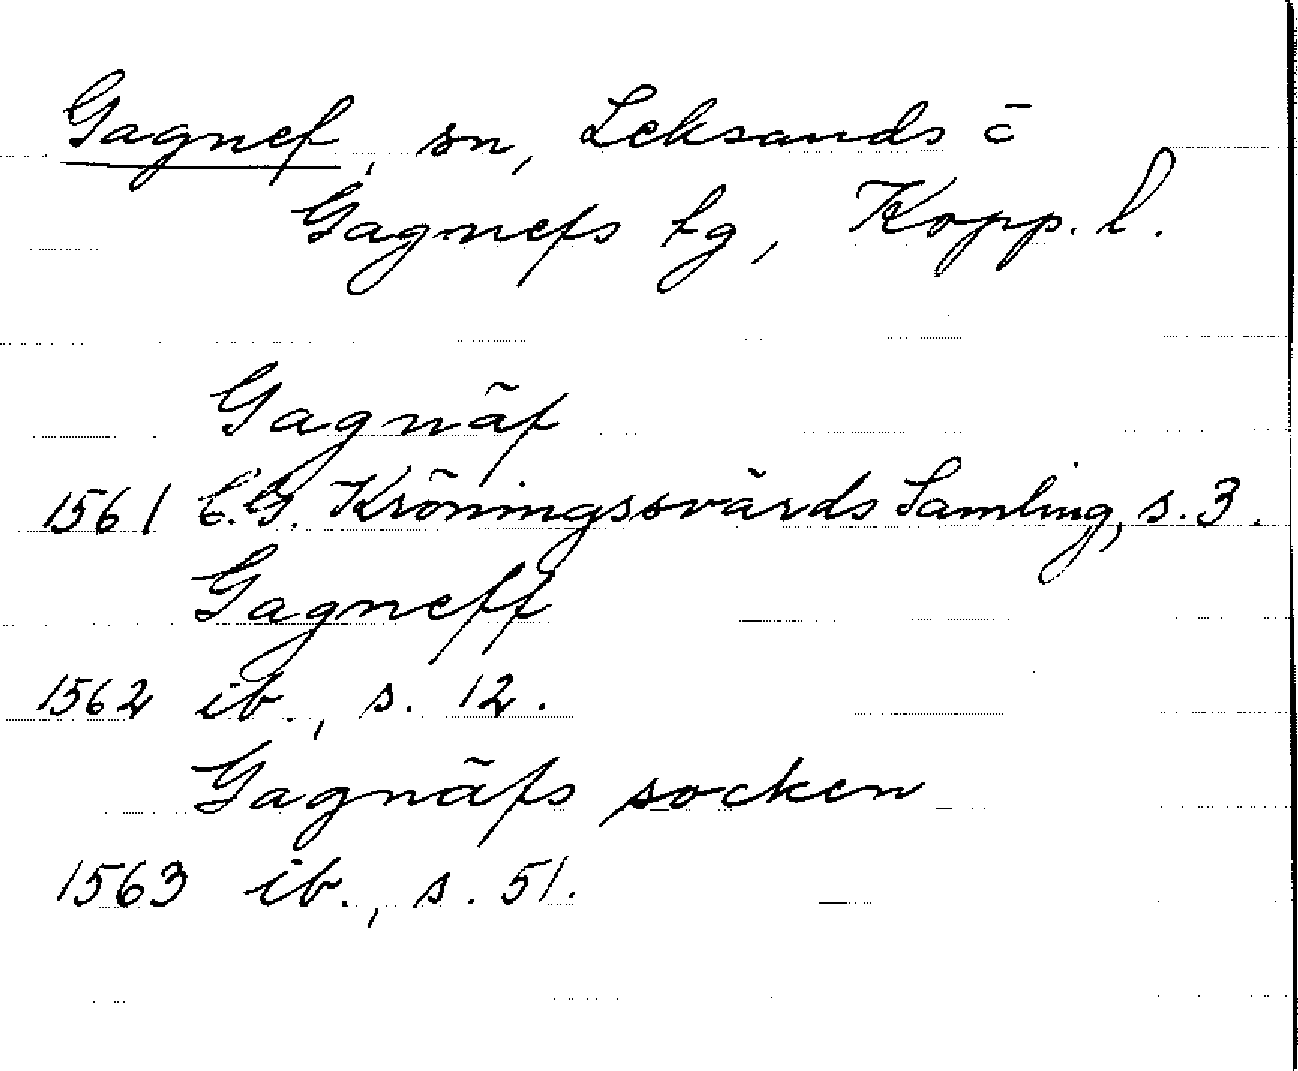 Gagnef, sn, Leksands o
Gagnefs tg, Kopp. l.
Gagnäf
1561 C.G. Kröningssvärds Samling, s. 3.
Gagneff
1562 ib., s. 12.
Gagnäfs socken
1563 ib., s. 51.